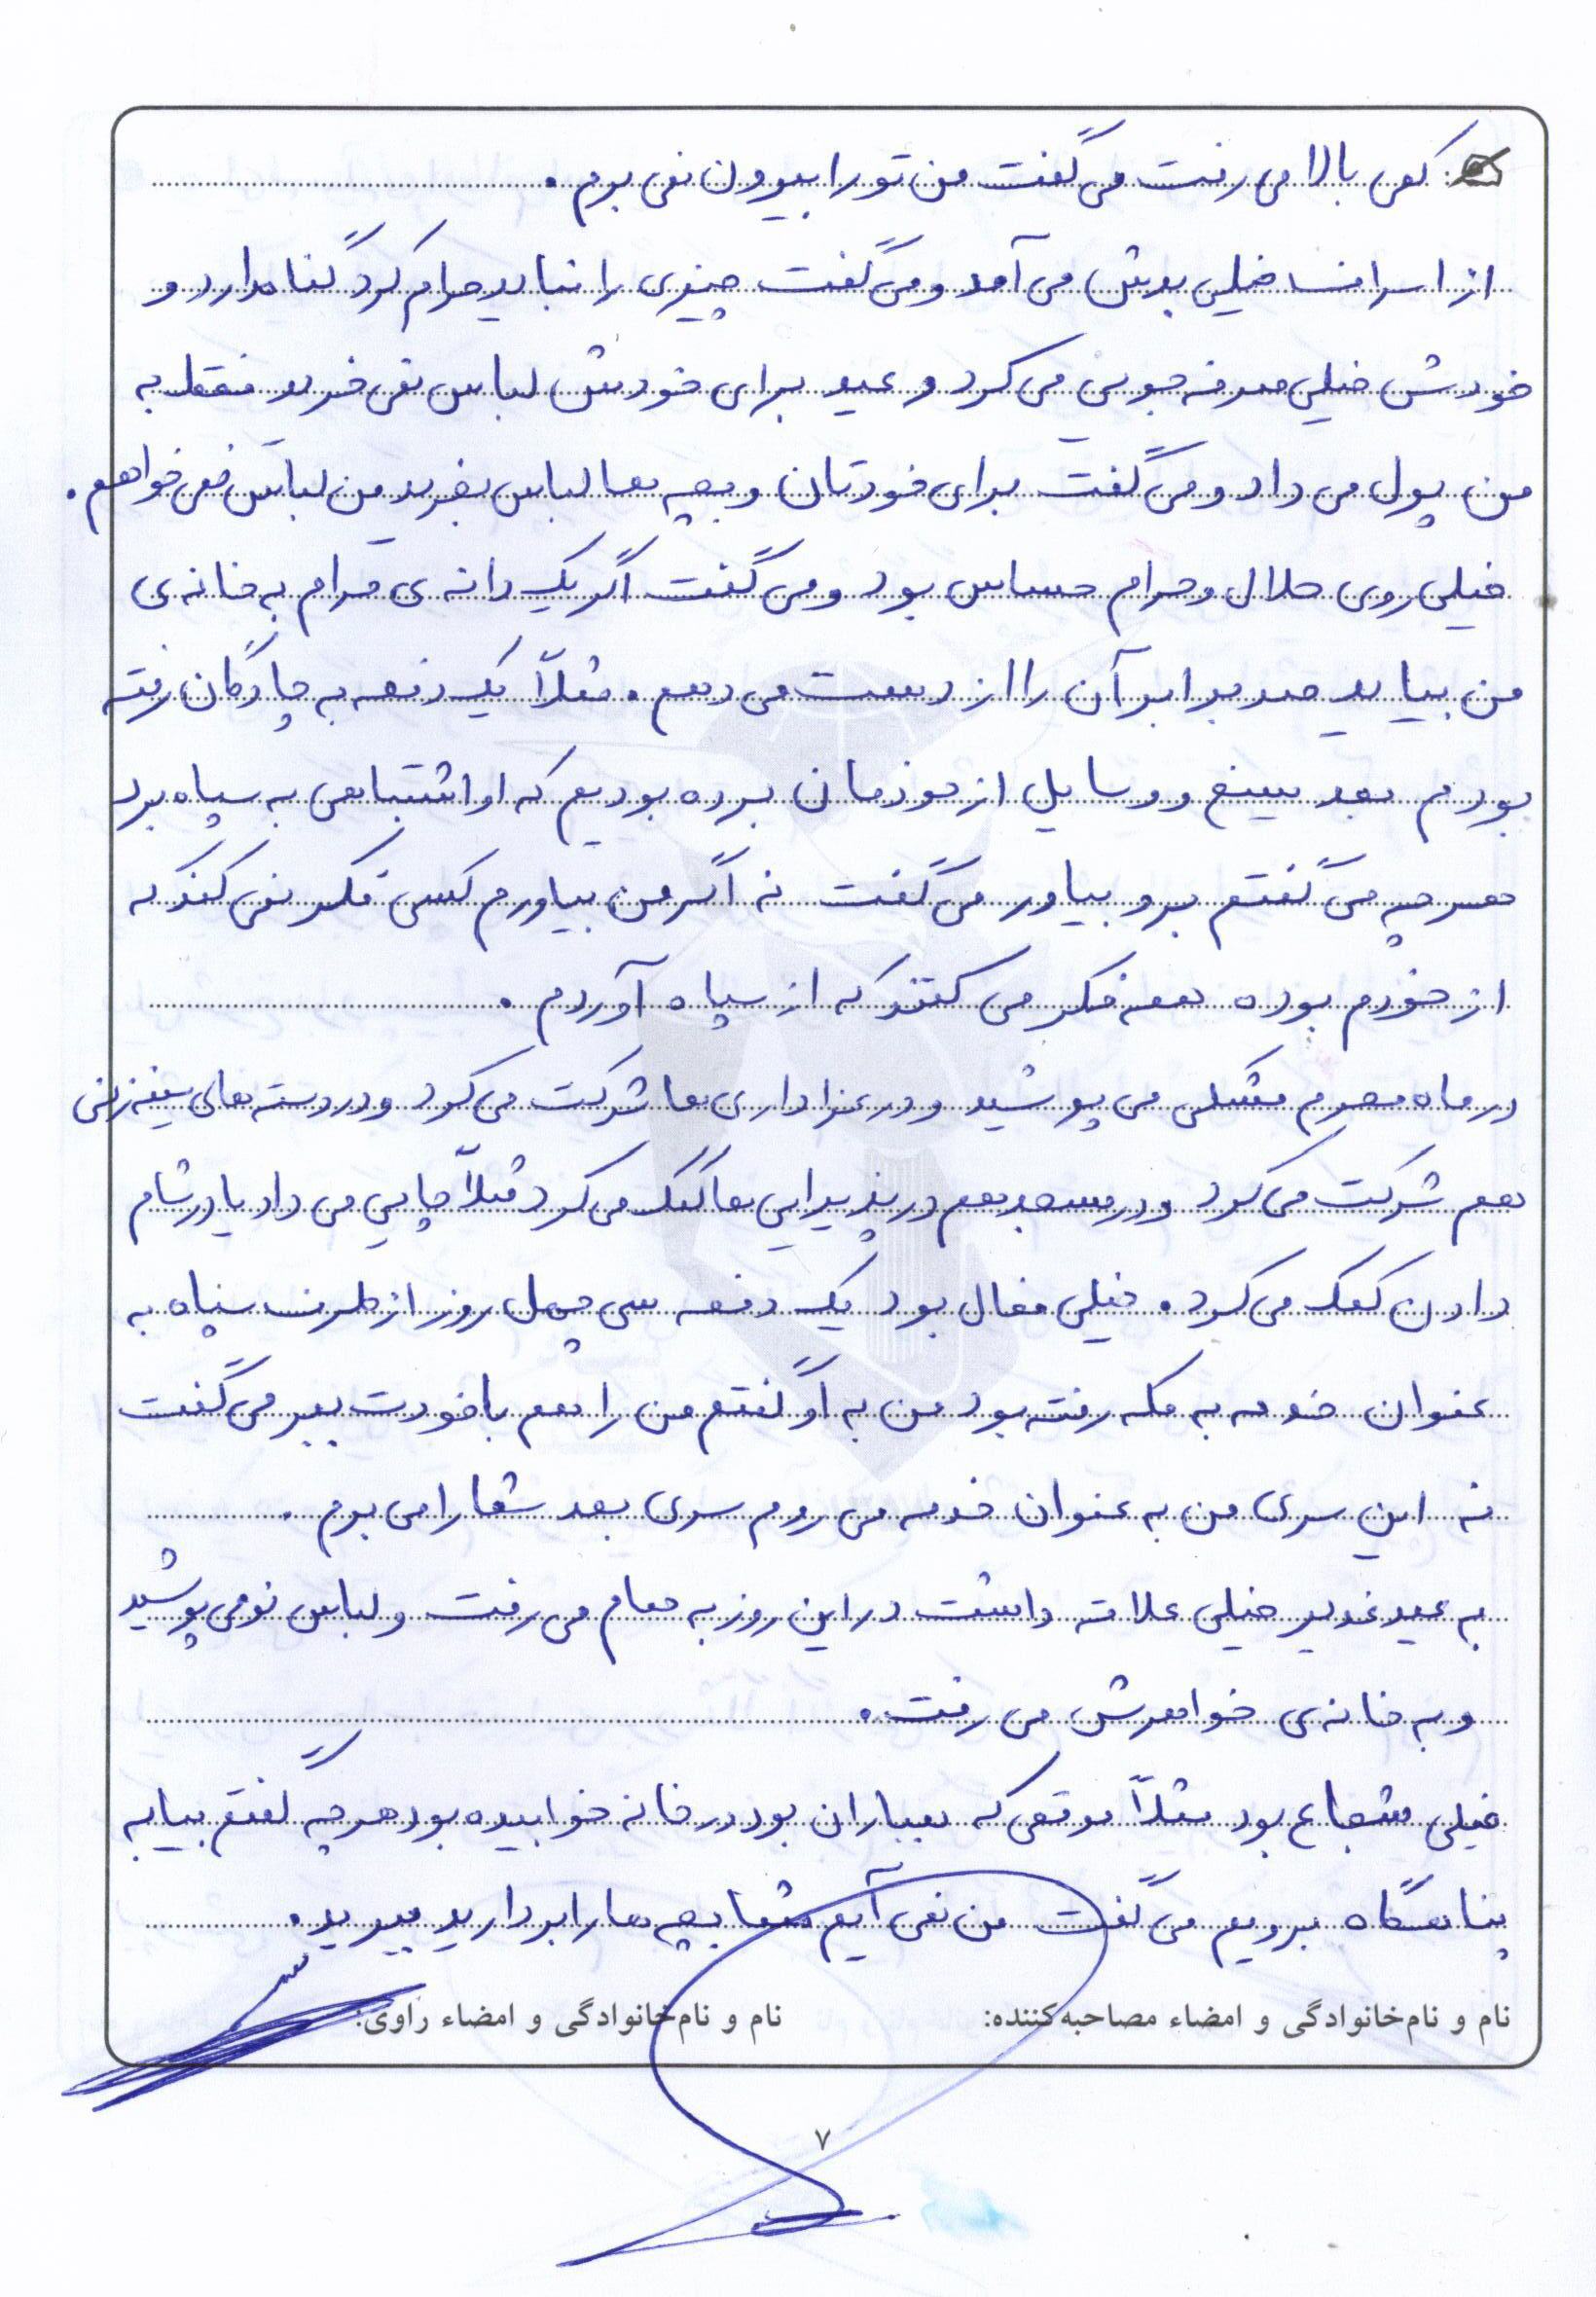 کمی بالا می رفت می گفت من تو را بیرون نمی برم .
از اسراف خیلی بدش می آمد و می گفت چیزی را نباید حرام کرد گناه دارد و
خودش خیلی صرفه جویی می کرد و عید برای خودش لباس نمی خرید فقط به
من پول می داد و می گفت برای خودتان و بچه ها لباس بخرید من لباس نمی خواهم .
خیلی روی حلال و حرام حساس بود و می گفت اگر یک دانه ی حرام به خانه ی
من بیاید صد برابر آن را از دست می دهم . مثلاً یک دفعه به چادگان رفته
بودم بعد سیخ و وسایل از خودمان برده بودیم که او اشتباهی به سپاه برد
هر چه می گفتم برو بیاور می گفت نه اگر من بیاورم کسی فکر نمی کند که
از خودم بوده همه فکر می کنند که از سپاه آوردم .
در ماه محرم مشکی می پوشید و در عزاداری ها شرکت می کرد و در دسته های سینه زنی
هم شرکت می کرد و در مسجد هم در پذیرایی ها کمک می کرد مثلاً چایی می داد یا در شام
دادن کمک می کرد . خیلی فعال بود یک دفعه سی چهل روز از طرف سپاه به
عنوان خدمه به مکه رفته بود من به او گفتم من را هم با خودت ببر می گفت
نه این سری من به عنوان خدمه می روم سری بعد شما را می برم .
به عید غدیر خیلی علاقه داشت در این روز به حمام می رفت و لباس نو می پوشید
و به خانه ی خواهرش می رفت .
خیلی شجاع بود مثلاً موقعی که بمباران بود در خانه خوابیده بود هر چه گفتم بیا به
پناهگاه برویم می گفت من نمی آیم شما بچه ها را بردارید ببرید .
نام و نام‌خانوادگی و امضاء مصاحبه‌کننده: نام و نام‌خانوادگی و امضاء راوی:
۷